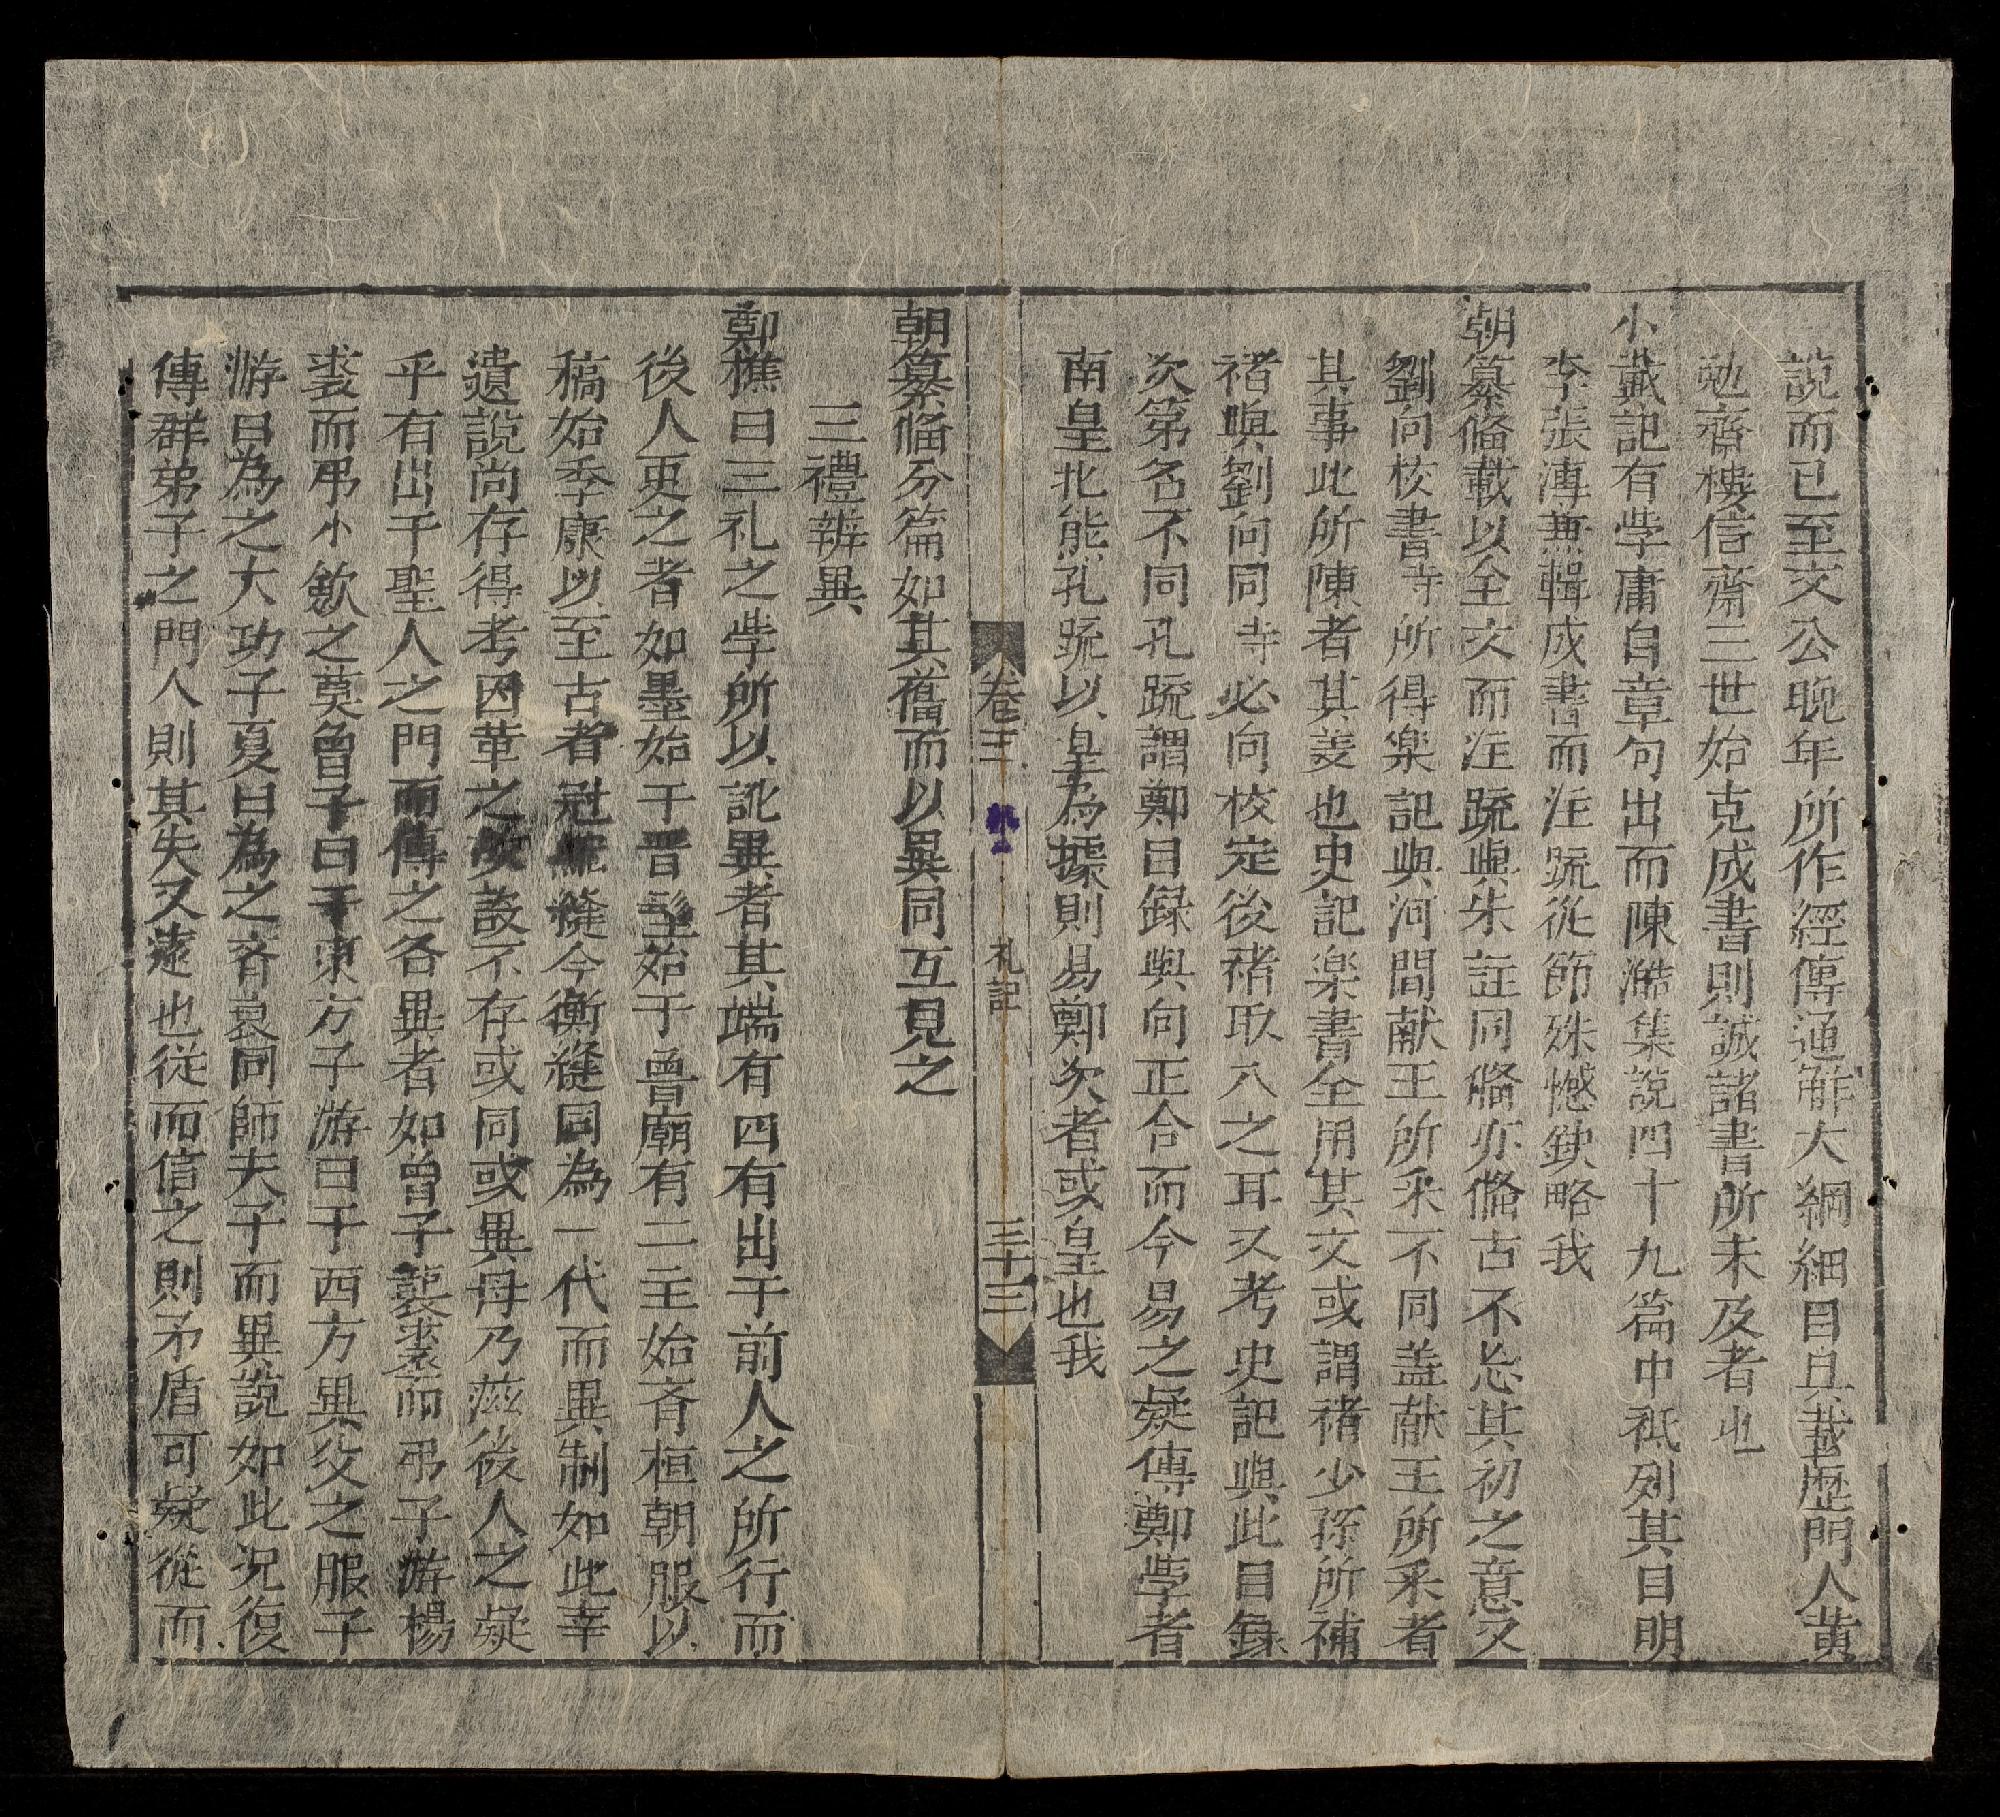 說而已至文公晚年所作經傳通觧大綱細目具載歷門人黄
勉齋楼信齋三世始克成書則誠諸書所未及者也
小戴記有學庸自章句出而陳澔集說四十九篇中祗列其目明
李張溥兼輯成書而注䟽從節殊憾欽略我
朝纂俻載以全文而注䟽與朱註同俻亦俻古不忘其初之意又
劉向校書寺所得楽記與河間献王所采不同盖献王所采者
其事此所陳者其義也史記楽書全用其文或謂褚少孫所補
褚與劉向同寺必向校定後褚取入之耳又考史記與此目錄
次第名不同孔䟽謂鄭目錄與向正合而今易之疑傳鄭學者
南皇北熊孔䟽以皇為據則易鄭次者或皇也我
卷三 礼記 三十三
朝纂俻分篇如其舊而以異同互見之
三禮辨異
鄭樵曰三礼之學所以訛異者其端有四有出于前人之所行而
後人更之者如墨始于晋髽始于魯廟有二主始斉桓朝服以
稿始季康以至古者冠縮縫今衡縫同為一代而異制如此幸
遺說尚存得考因革之故設不存或同或異毋乃滋後人之疑
乎有出于聖人之門而傳之各異者如曾子襲裘而弔子游楊
裘而弔小歛之奠曾子曰于東方子游曰于西方異父之服子
游曰為之大功子夏曰為之斉衰同師夫子而異說如此况復
傳群弟子之門人則其失又遠也従而信之則矛盾可疑從而